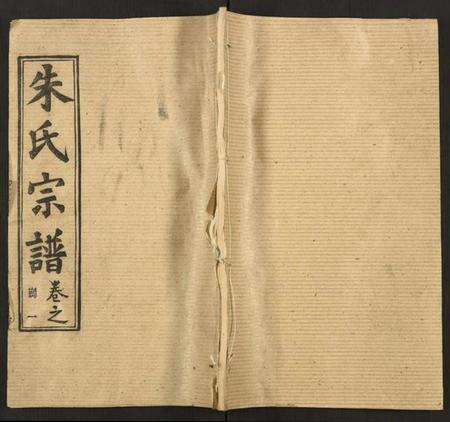 朱氏宗譜
卷之
一